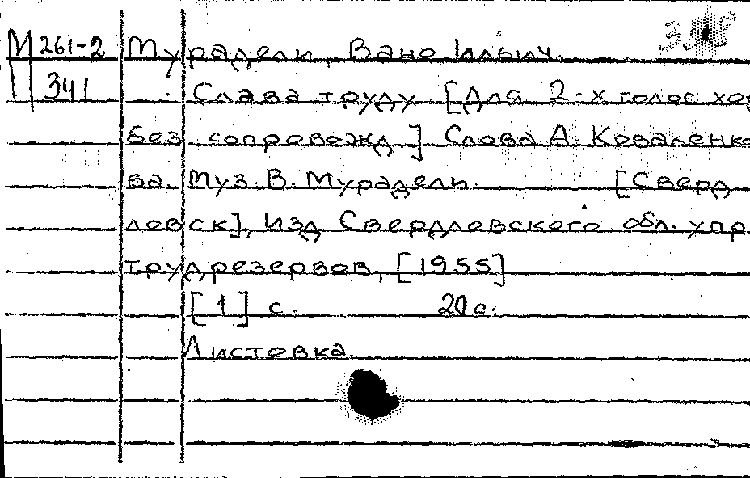 М 261-2 Мурадели, Вано Ильич.
341 Слава труду [Для 2-х голос хор
без сопровожд.] Слова А. Коваленко
ва. Муз. В. Мурадели. [Сверд
ловск], Изд Свердловского обл. упр.
труд.резервов, [1955]
[1] с. 20 с.
Листовка